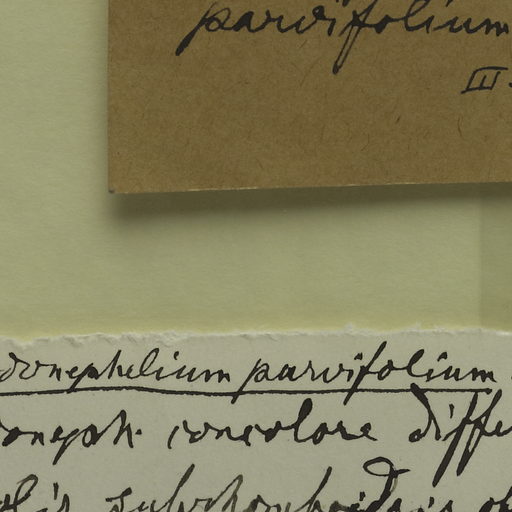 parvifolium
III.
donephelium parvifolium
doneph. concolore diffe
olis subrhomboidais